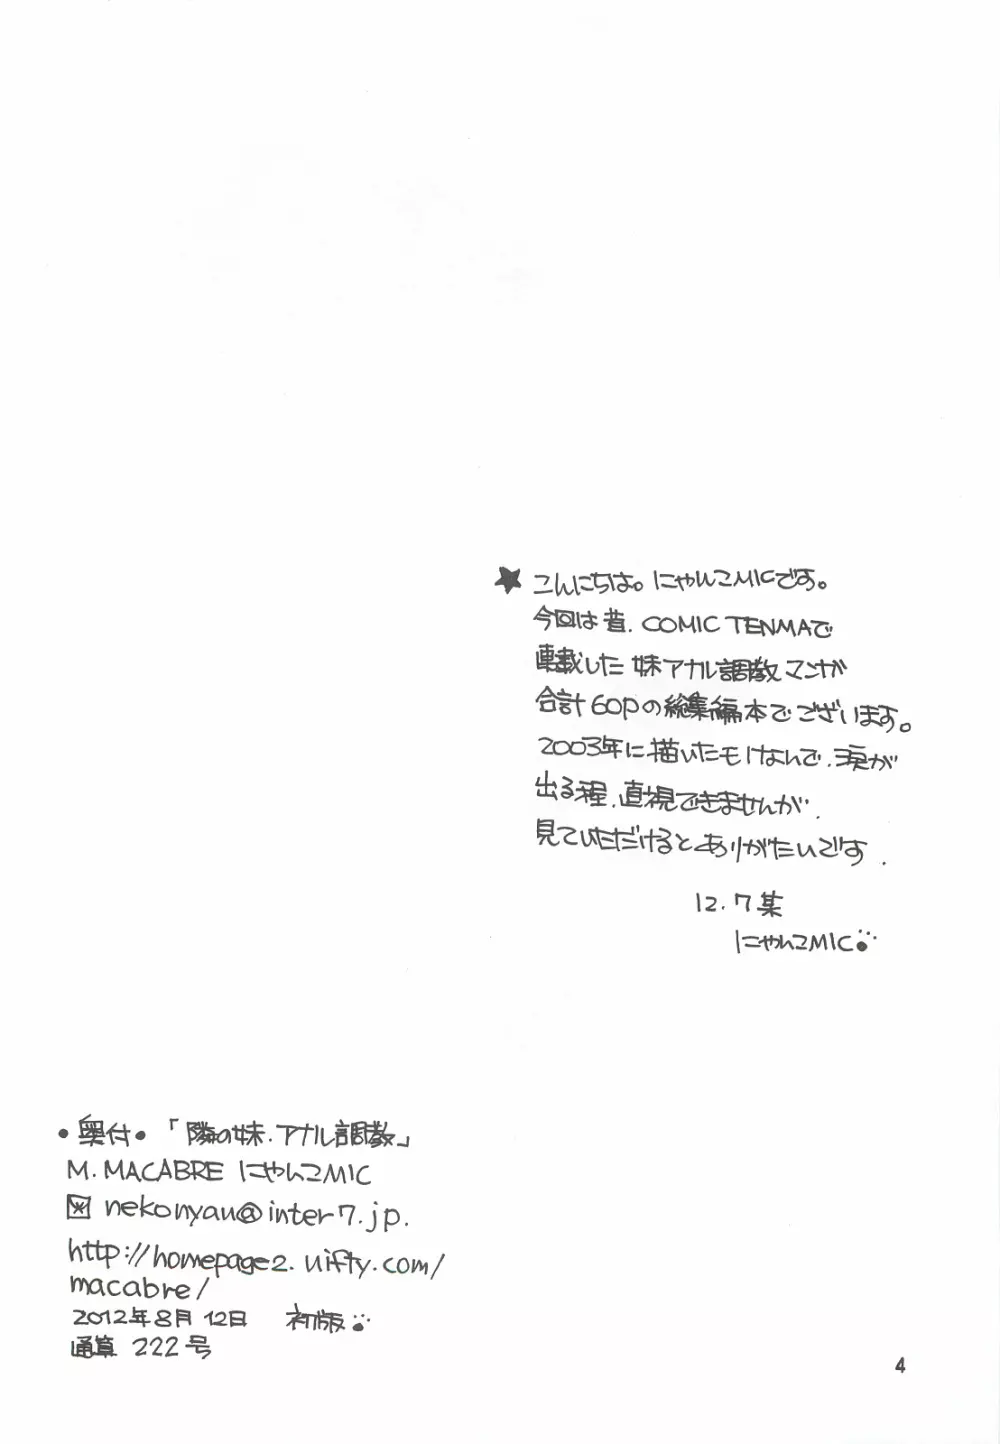 ★ こんにちは。にゃんこMICです。
今回は昔、COMIC TENMAで
連載した妹アナル調教マンガ
合計60Pの総集編本でございます。
2003年に描いたモけなんで、涙が
出る程、直視できませんが、
見ていただけるとありがたいです.
12.7某
にゃんこMIC
・奥付・「隣の妹・アナル調教」
M.MACABRE にゃんこMIC
nekonyan@inter7.jp.
http://homepage2.nifty.com/
macabre/
2012年8月12日 初版
通算 222号
4